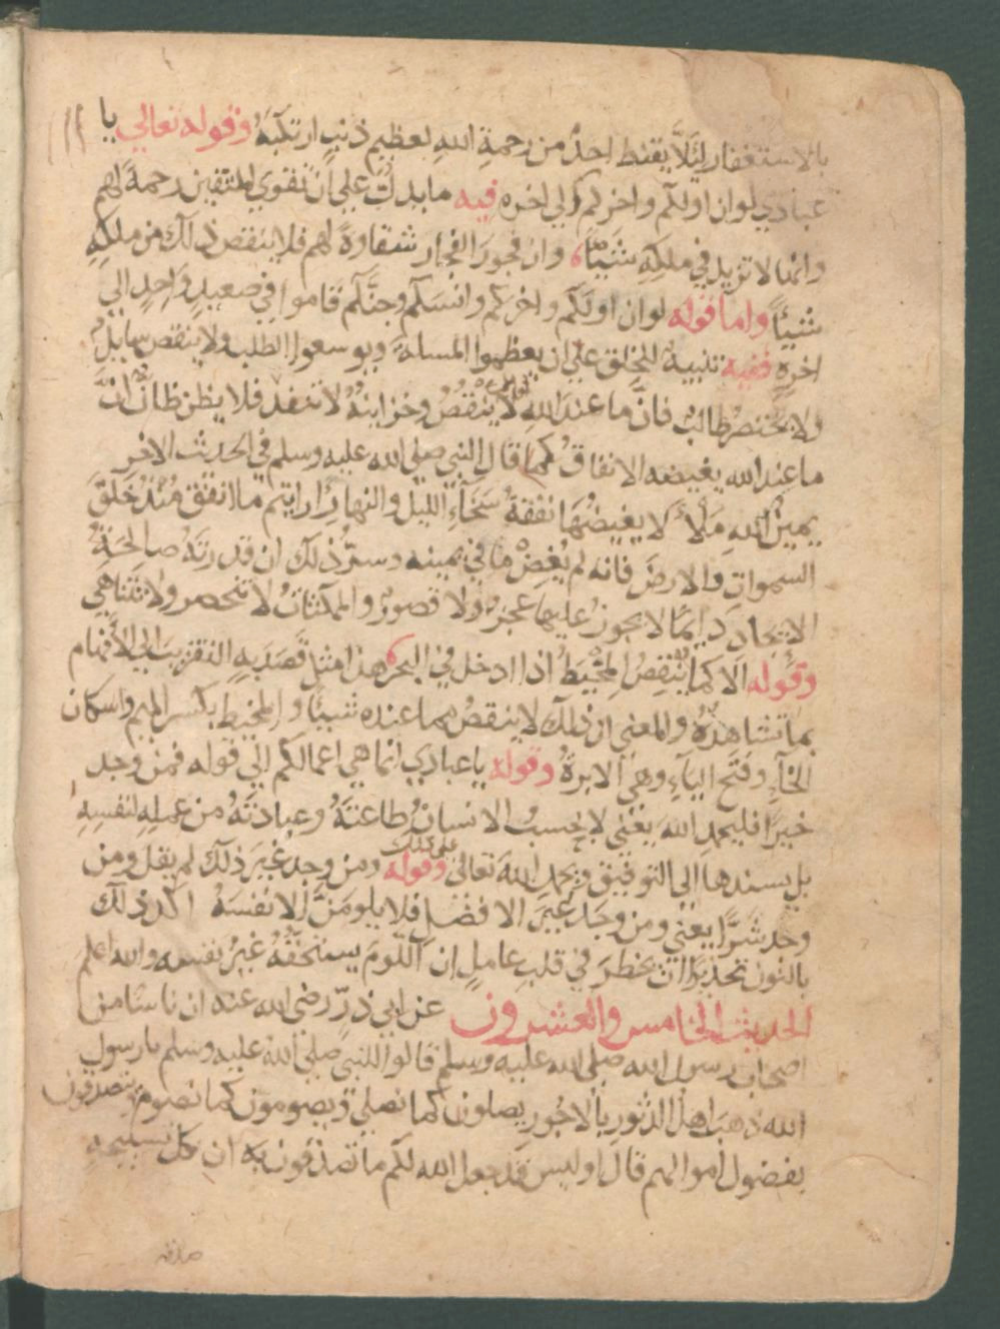 بالاستغفار لئلا يقنط احد من رحمة الله لعظيم ذنب ارتكبه وقوله تعالي يا
عبادي لو ان اولكم واخركم الي اخره فيه ما يدل علي ان تقوي المتقين رحمة لهم
وانها لا تزيد في ملكه شيئا وان فجور الفجار شقاوة لهم فلا ينقص ذلك من ملكه
شيئا واما قوله لو ان اولكم واخركم وانسكم وجنكم قاموا في صعيد واحد الي
اخره ففيه تنبيه الخلق علي ان يعظموا المسالة ويوسعوا الطلب ولا يقتصر سايل
ولا يختصر طالب فان ما عند الله لا ينقص وخزاينه لا تنفد فلا يظن ظان ان
ما عند الله يغيضه الانفاق كما قال النبي صلي الله عليه وسلم في الحديث الاخر
يمين الله ملأ لا يغيضها نفقة سحاء الليل والنهار ارايتم ما انفق منذ خلق
السموات والارض فانه لم يغض ما في يمينه وسر ذلك ان قدرته صالحة
الايجاد دايما لا يجوز عليها عجز ولا قصور والممكنات لا تنحصر ولا تتناهي
وقوله الا كما ينقص المخيط اذا ادخل في البحر هذا مثل قصد به التقريب الي الافهام
بما تشاهده والمعني ان ذلك لا ينقص مما عنده شيئا والمخيط بكسر الميم واسكان
الخاء وفتح الياء وهي الابرة وقوله يا عبادي انما هي اعمالكم الي قوله فمن وجد
خيرا فليحمد الله يعني لا يحسب الانسان طاعته وعبادته من عمله لنفسه
بل يسندها الي التوفيق ويحمد الله تعالي علي ذلك وقوله ومن وجد غير ذلك لم يقل ومن
وجد شرا يعني ومن وجد غير الافضل فلا يلومن الا نفسه اكد ذلك
بالنون تحذيرا ان يخطر في قلب عامل ان اللوم يستحقه غير نفسه والله اعلم
الحديث الخامس والعشرون عن ابي ذر رضي الله عنه ان ناسا من
اصحاب رسول الله صلي الله عليه وسلم قالوا للنبي صلي الله عليه وسلم يا رسول
الله ذهب اهل الدثور بالاجور يصلون كما نصلي ويصومون كما نصوم ويتصدقون
بفضول اموالهم قال اوليس قد جعل الله لكم ما تصدقون به ان بكل تسبيحة
صدقة